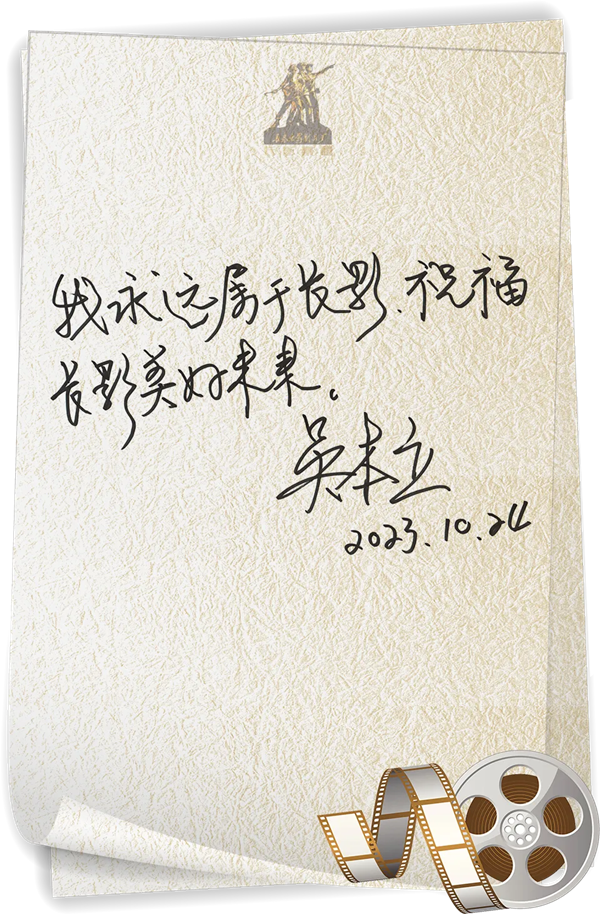 我永远属于长影.祝福
长影美好未来。
吴本立
2023.10.24